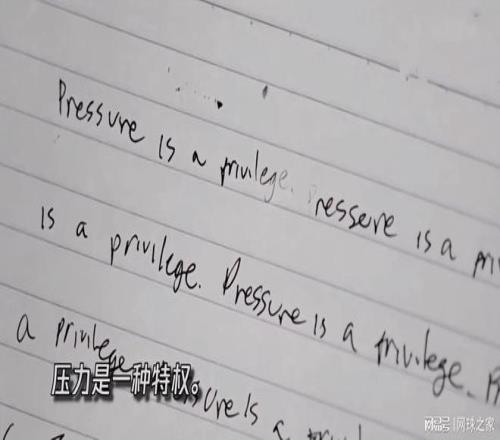 Pressure is a privilege. Pressere is a
is a privilege. Pressure is a privilege.
a privilege
压力是一种特权。
网球之家